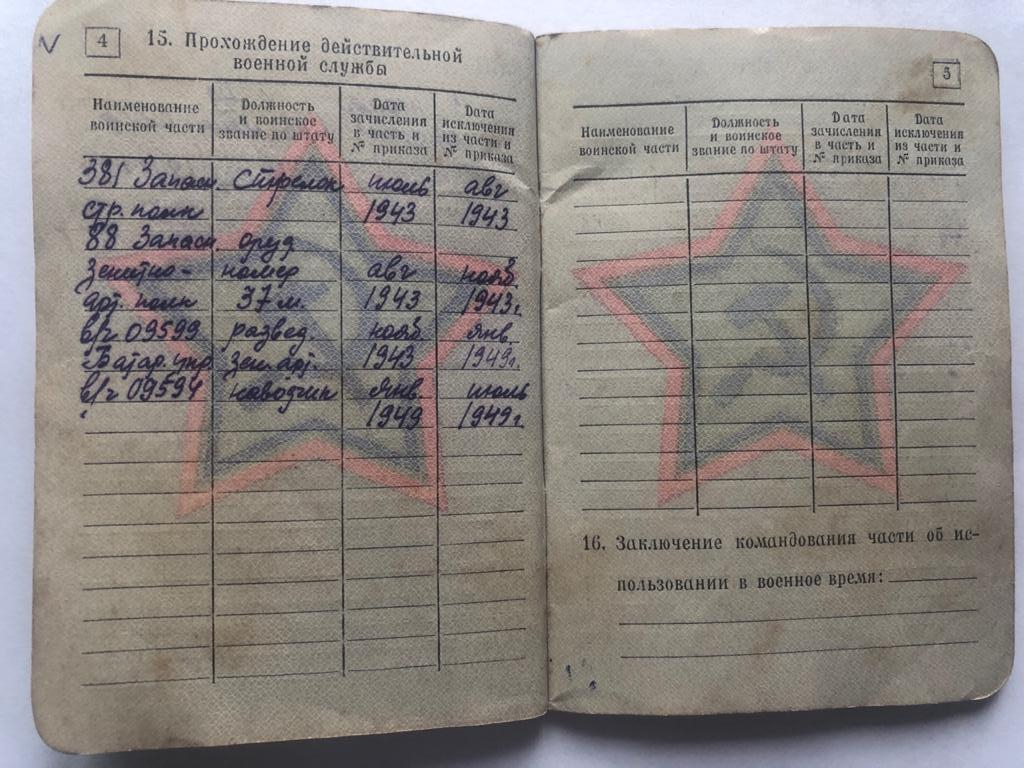 4
15. Прохождение действительной
военной службы
Наименование воинской части
Должность и воинское звание по штату
Дата зачисления в часть и № приказа
Дата исключения из части и № приказа
381 Запасн. Стрелок июль авг
стр. полк 1943 1943
88 Запасн. оруд
Зенитно- номер авг нояб
арт. полк 37 м. 1943 1943г.
в/ч 09599 развед. нояб янв.
Батар. упр зен. арт. 1943 1949г.
в/ч 09594 наводчик янв. июль
1949 1949г.
5
Наименование воинской части
Должность и воинское звание по штату
Дата зачисления в часть и № приказа
Дата исключения из части и № приказа
16. Заключение командования части об ис-
пользовании в военное время: